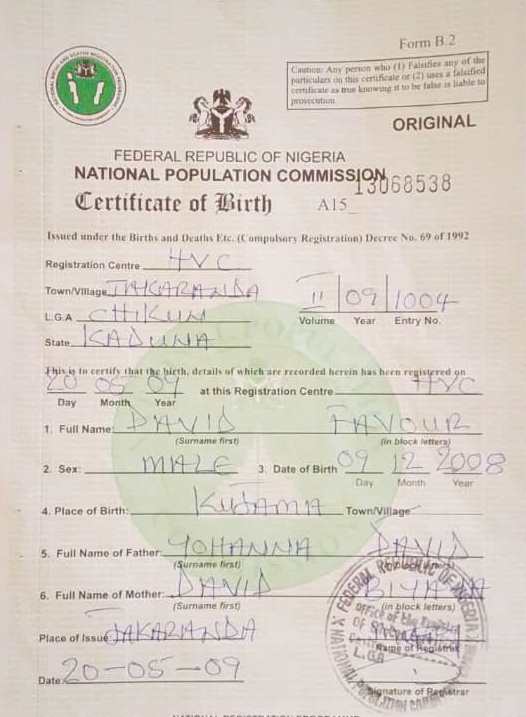 Form B.2
Caution: Any person who (1) Falsifies any of the
particulars on this certificate or (2) uses a falsified
certificate as true knowing it to be false is liable to
prosecution.
ORIGINAL
FEDERAL REPUBLIC OF NIGERIA
NATIONAL POPULATION COMMISSION
13068538
Certificate of Birth A15_
Issued under the Births and Deaths Etc. (Compulsory Registration) Decree No. 69 of 1992
Registration Centre HVC
Town/Village JAKARANDA
II 09 1004
L.G.A CHIKUN
Volume Year Entry No.
State KADUNA
This is to certify that the birth, details of which are recorded herein has been registered on
20 05 09 at this Registration Centre HVC
Day Month Year
1. Full Name: DAVID FAVOUR
(Surname first) (in block letters)
2. Sex: MALE 3. Date of Birth 09 12 2008
Day Month Year
4. Place of Birth: KUJAMA Town/Village
5. Full Name of Father: YOHANNA DAVID
(Surname first)
6. Full Name of Mother: DAVID
(Surname first) (in block letters)
Place of Issue JAKARANDA
Name of Registrar
Date: 20-05-09
Signature of Registrar
FEDERAL REPUBLIC OF NIGERIA
L.G.A